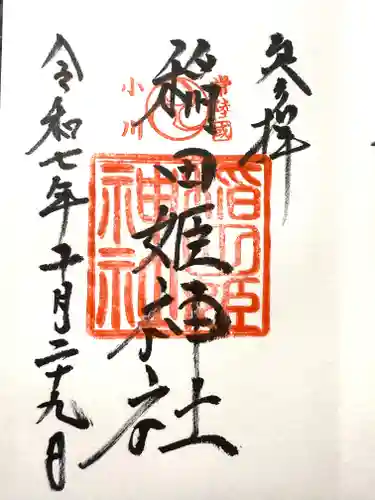 奉拝
常陸國
小川
稲田姫神社
稲田姫
神社
令和七年十月二十九日